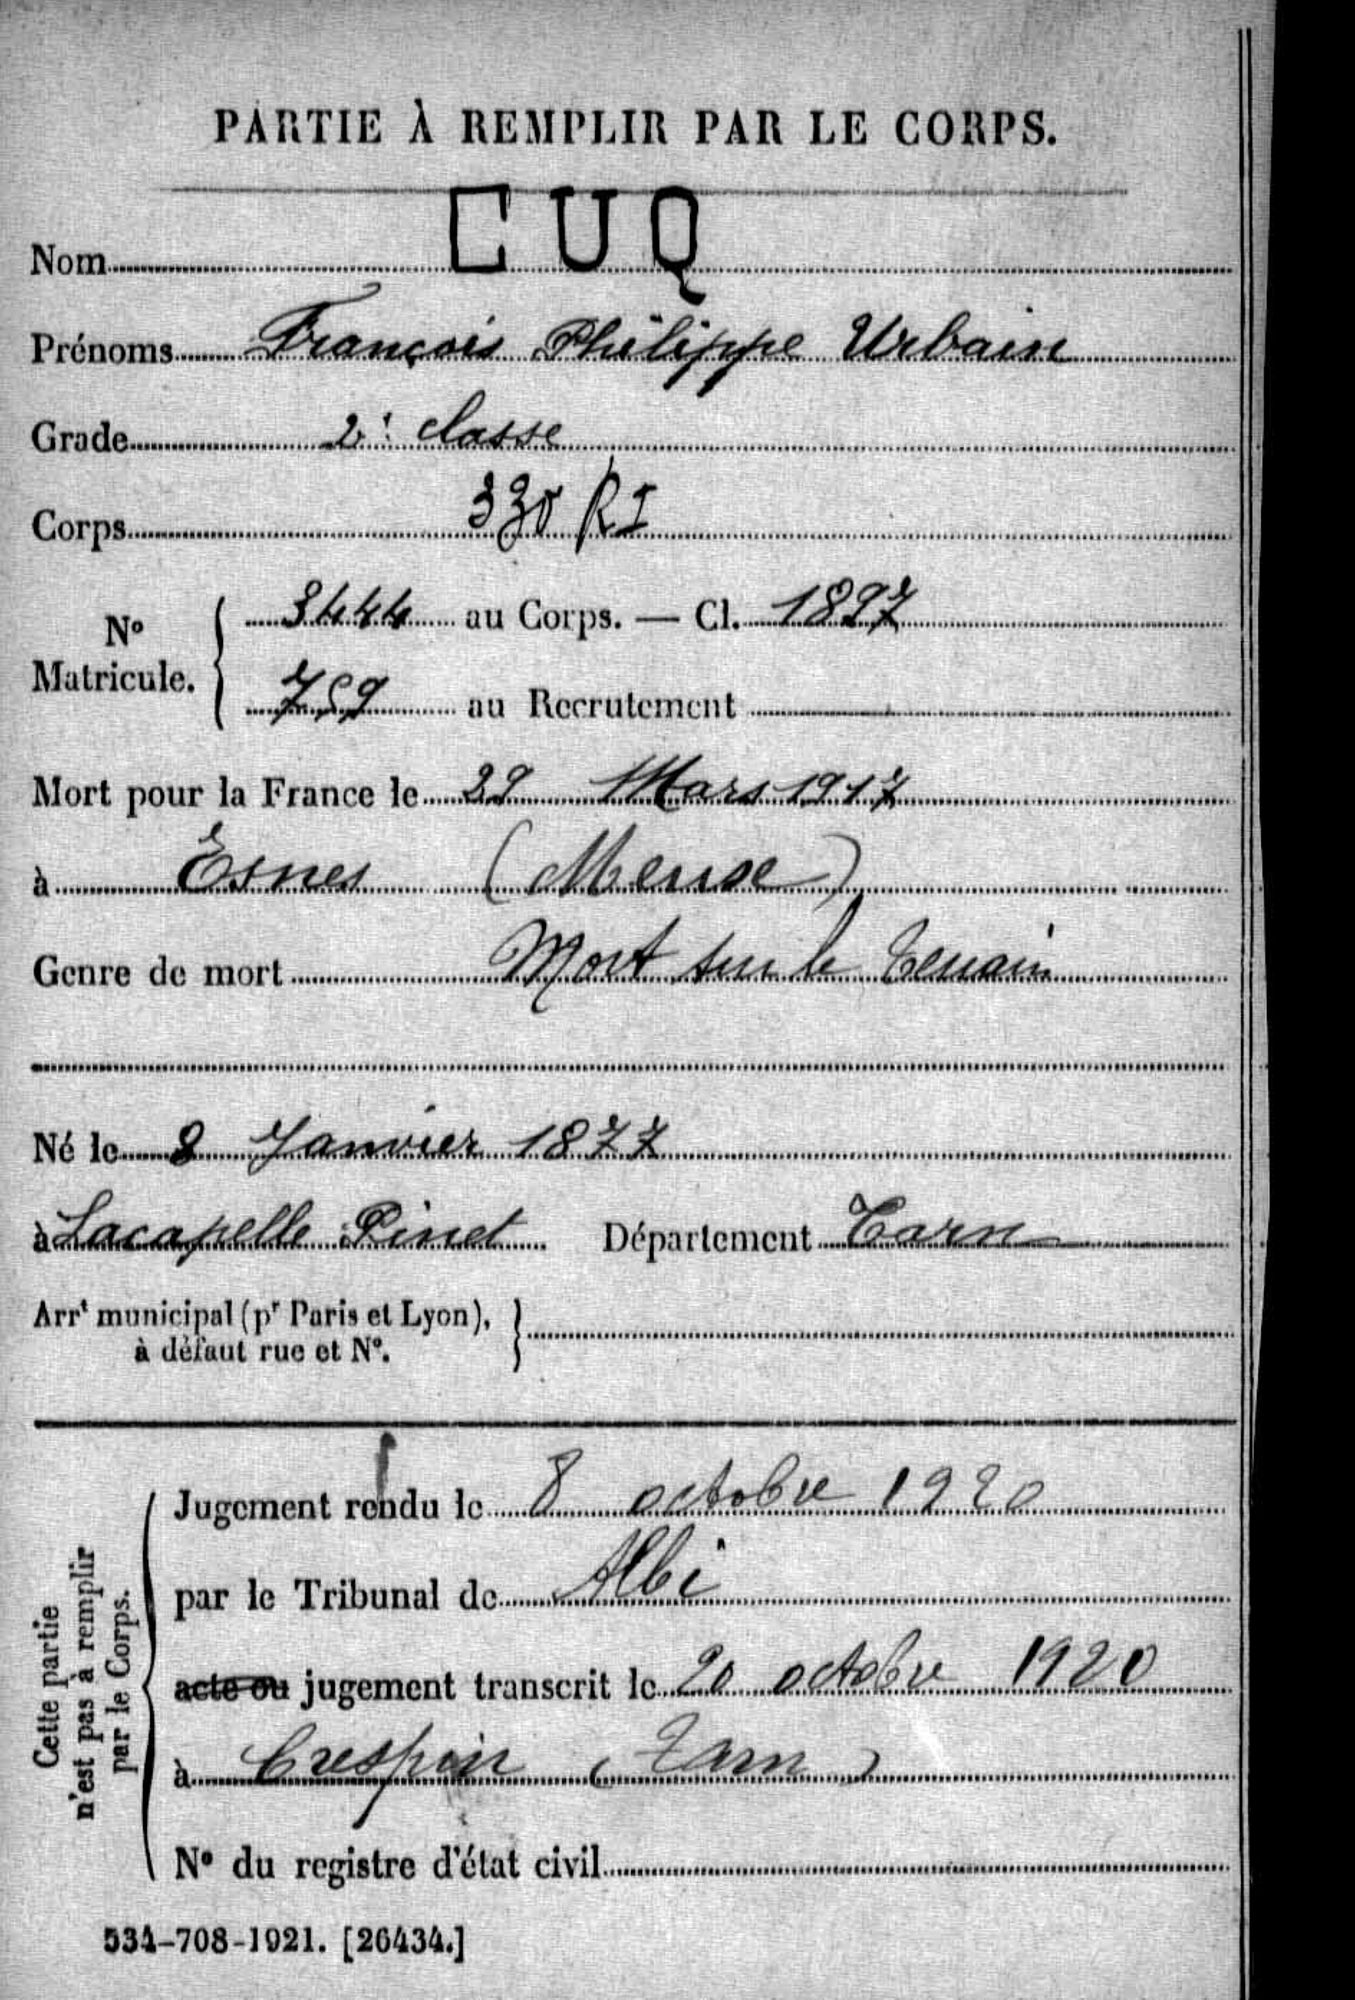 PARTIE À REMPLIR PAR LE CORPS.
Nom CUQ
Prénoms François Philippe Urbain
Grade 2e classe
Corps 330 RI
No Matricule. 3444 au Corps. — Cl. 1897
759 au Recrutement
Mort pour la France le 29 Mars 1917
à Esnes (Meuse)
Genre de mort Mort sur le terrain
Né le 8 Janvier 1877
à Lacapelle Pinet Département Tarn
Arrt municipal (pr Paris et Lyon),
à défaut rue et No.
Cette partie
n'est pas à remplir
par le Corps.
Jugement rendu le 8 octobre 1920
par le Tribunal de Albi
acte ou jugement transcrit le 20 octobre 1920
à Crespin (Tarn)
No du registre d'état civil
534-708-1921. [26434.]